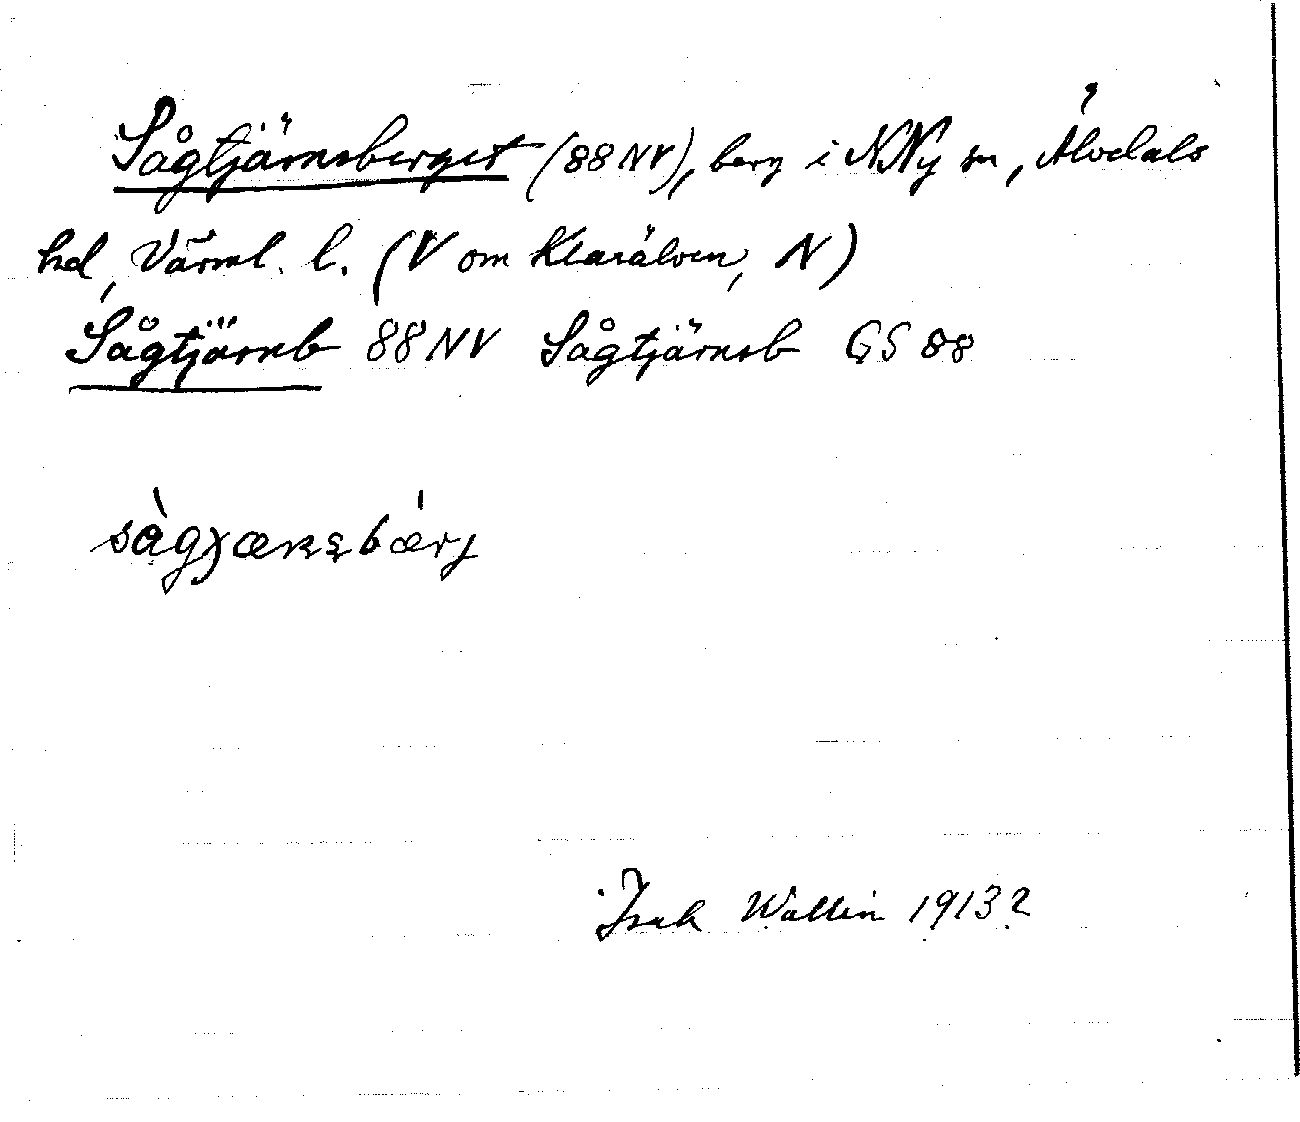 Sågtjärnsberget (88 NV), berg i N Ny sn, Älvdals
hd, Värml. l. (V om Klarälven, N)
Sågtjärnb 88 NV Sågtjärnsb GS 88
Isak Wallin 1913 2